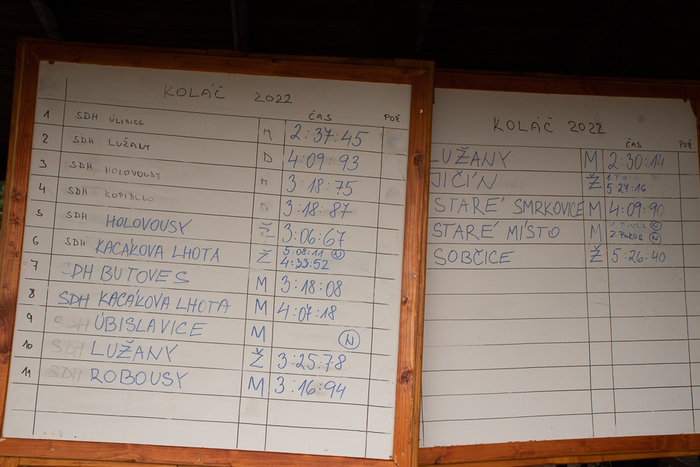 KOLÁČ 2022
ČAS POŘ
1 SDH ÚLIBICE M 2:37:45
2 SDH LUŽANY D 4:09:93
3 SDH HOLOVOUSY M 3:18:75
4 SDH KOPIDLNO M 3:18:87
5 SDH HOLOVOUSY Ž 3:06:67
6 SDH KACÁKOVA LHOTA Ž 5:08:11 N
4:33:52
7 SDH BUTOVES M 3:18:08
8 SDH KACÁKOVA LHOTA M 4:07:18
9 SDH ÚBISLAVICE M N
10 SDH LUŽANY Ž 3:25:78
11 SDH ROBOUSY M 3:16:94
KOLÁČ 2022
ČAS POŘ
LUŽANY M 2:30:14
JIČÍN Ž 5:27:16
STARÉ SMRKOVICE M 4:09:90
STARÉ MÍSTO M 1. POKUS N
2. POKUS N
SOBČICE Ž 5:26:40